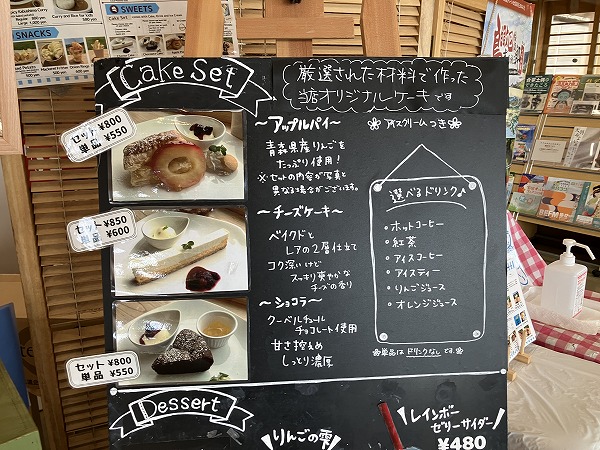 SWEETS
SNACKS
Cake Set
厳選された材料で作った
当店オリジナルケーキです
セット ¥800
単品 ¥550
～アップルパイ～
アイスクリームつき
青森県産りんごを
たっぷり使用！
※セットの内容が写真と
異なる場合がございます。
セット ¥850
単品 ¥600
～チーズケーキ～
ベイクドと
レアの2層仕立て
コク深いけど
スッキリ爽やかな
チーズの香り
セット ¥800
単品 ¥550
～ショコラ～
クーベルチュール
チョコレート使用
甘さ控えめ
しっとり濃厚
選べるドリンク♪
・ホットコーヒー
・紅茶
・アイスコーヒー
・アイスティー
・りんごジュース
・オレンジジュース
単品はドリンクなしです。
Dessert
りんごの雫
レインボー
ゼリーサイダー
¥480